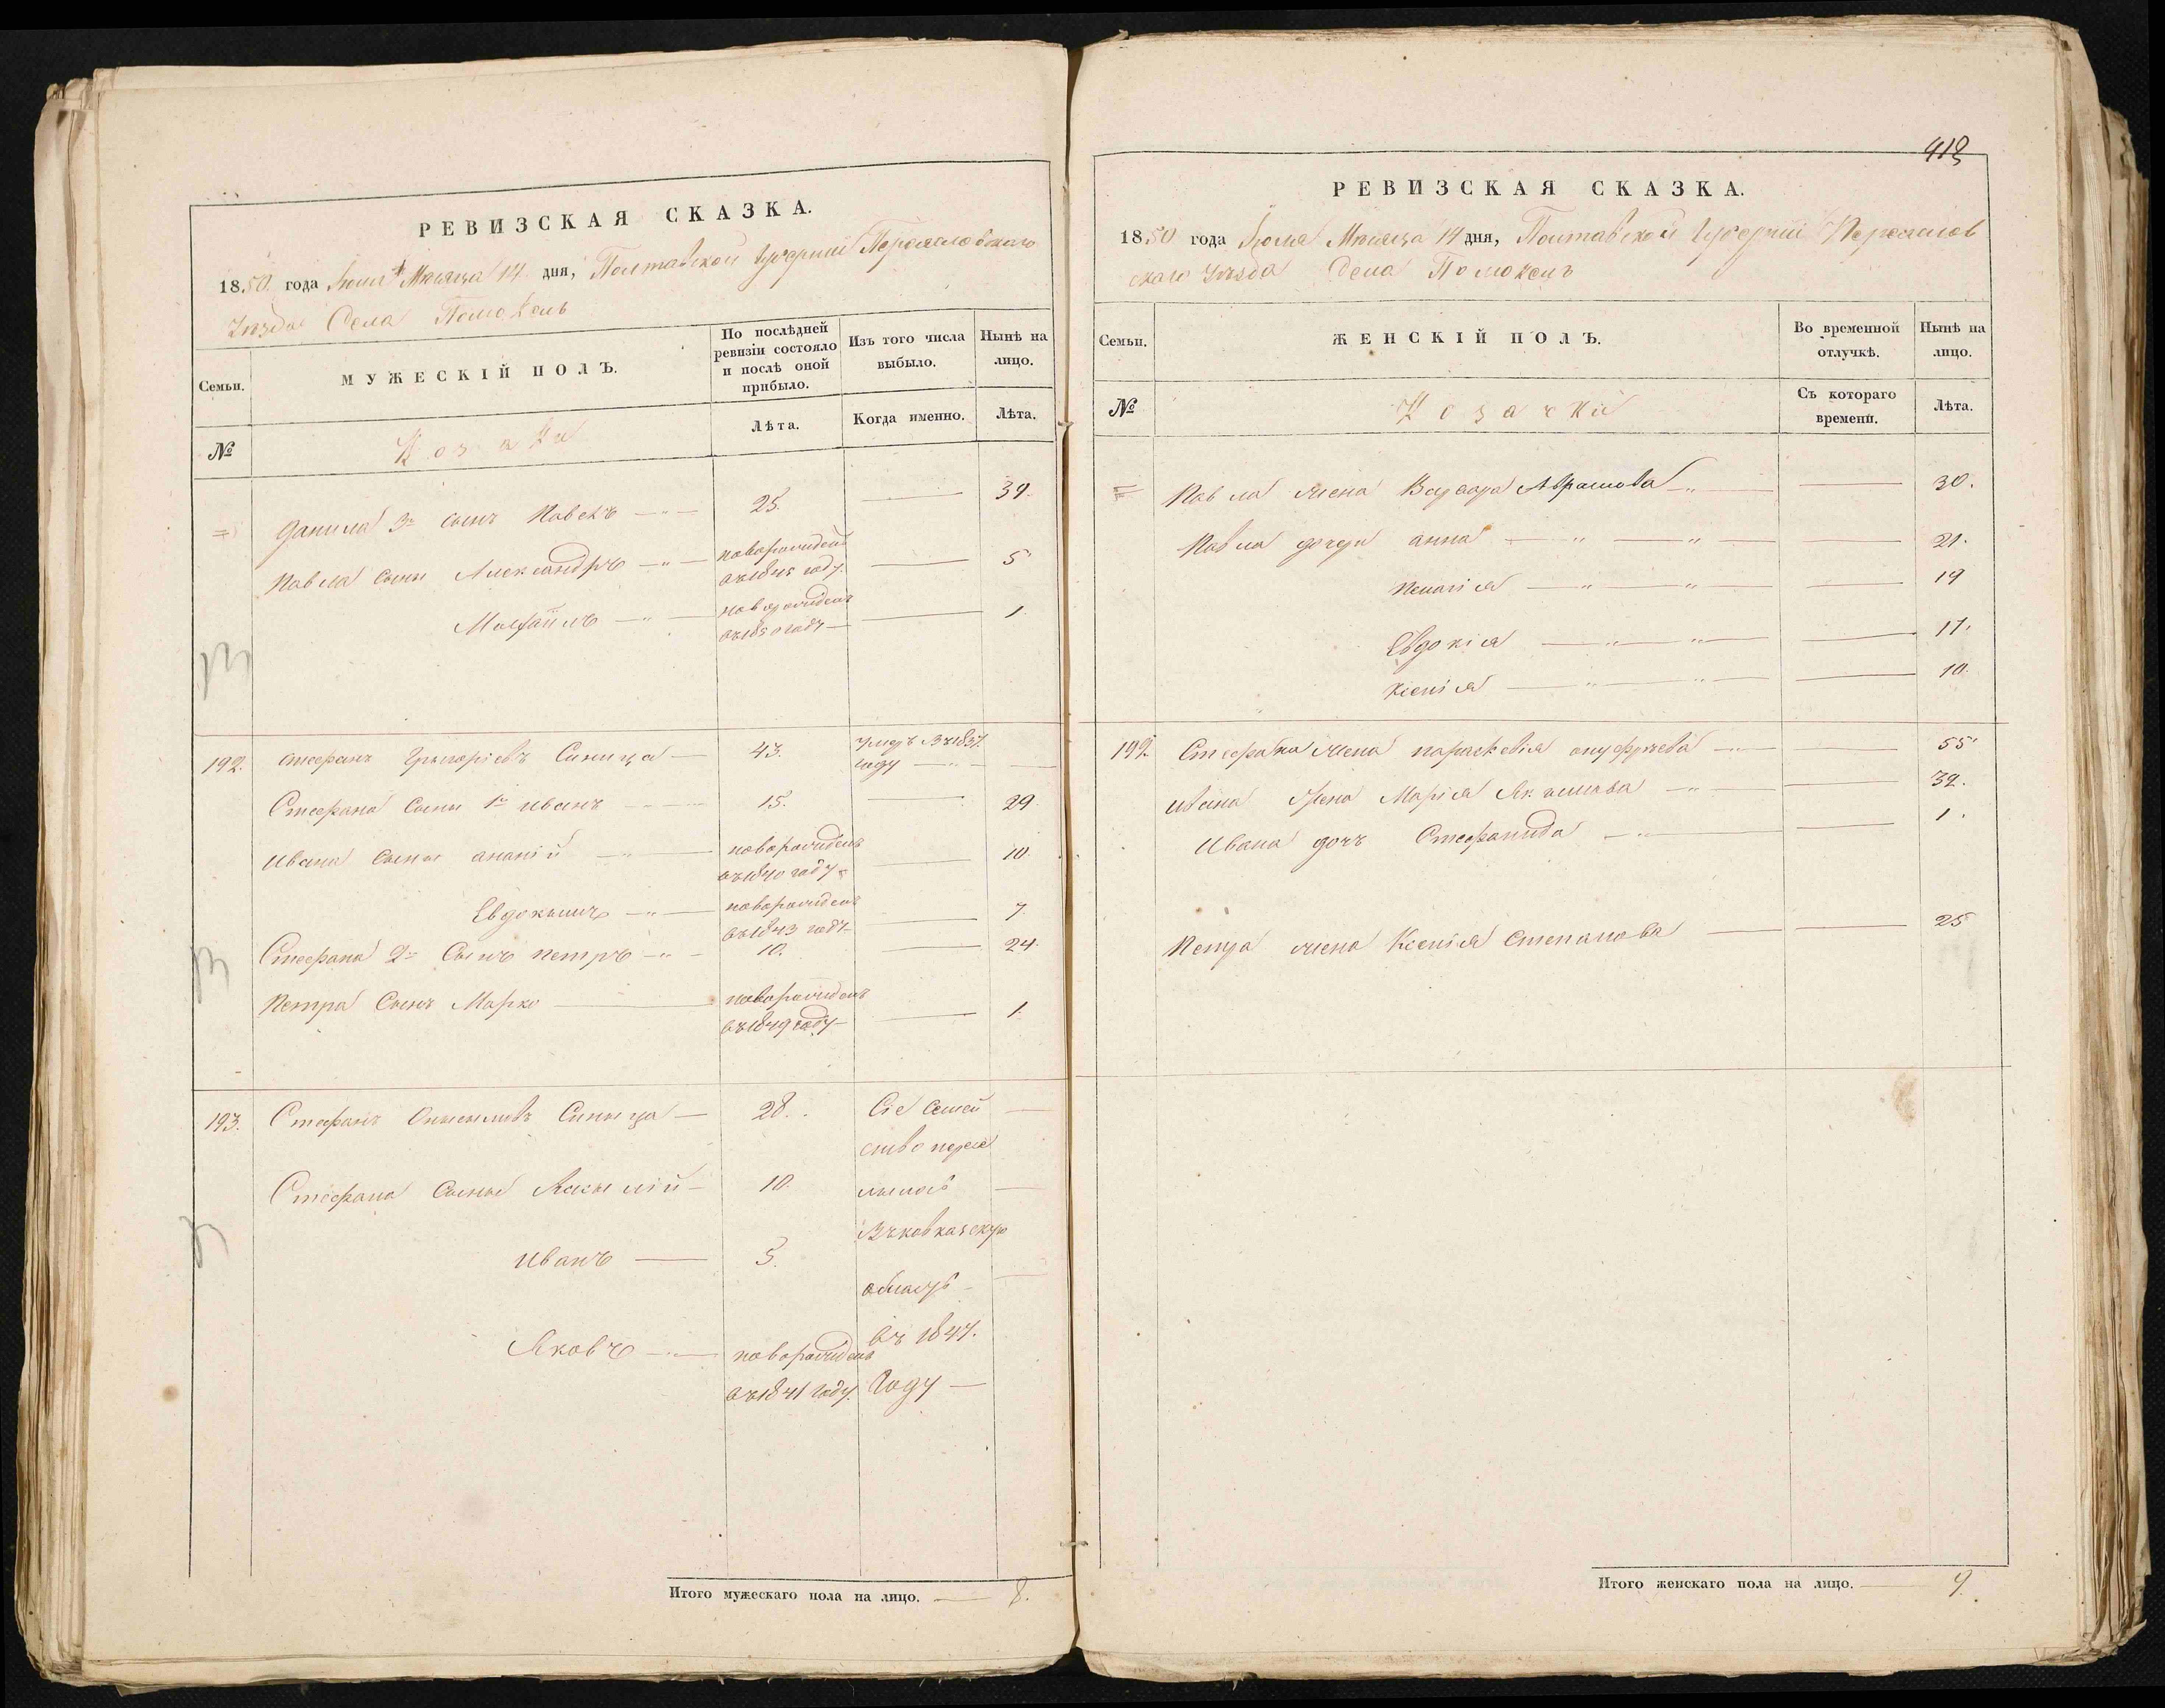 РЕВИЗСКАЯ СКАЗКА.
1850. года Іюня Мѣсяца 14 дня, Полтавской Губерніи Переяславскаго
Уѣзда Села Помокель
Семьи.
МУЖЕСКІЙ ПОЛЪ.
По послѣдней ревизіи состояло и послѣ оной прибыло.
Изъ того числа выбыло.
Нынѣ на лицо.
№
Козаки
Лѣта.
Когда именно.
Лѣта.
Данила 3й сынъ Павелъ 25. 39.
Павла сыны Александръ новорожденъ 5
въ 1845 году.
Михаилъ новорожденъ 1
въ 1850 году
192. Стефанъ Григоріевъ Синица 43. умеръ въ 1837
году
Стефана сыны 1й Иванъ 15. 29.
Ивана сыны Ананій новорожденъ 10.
въ 1840 году
Евдокимъ новорожденъ 7.
въ 1843 году
Стефана 2й сынъ Петръ 10. 24.
Петра сынъ Марко новорожденъ 1.
въ 1849 году
193. Стефанъ Синица 28. Сіе семей
ство пересе
Стефана сыны 10. лилось
Въ Кавказскую
Иванъ 5.
область
въ 1847.
Яковъ новорожденъ
въ 1841 году. Году
Итого мужескаго пола на лицо. 8.
413
РЕВИЗСКАЯ СКАЗКА.
1850 года Іюня Мѣсяца 14 дня, Полтавской Губерніи Переяслов
скаго Уѣзда Села Помокель
Семьи.
ЖЕНСКІЙ ПОЛЪ.
Во временной отлучкѣ.
Нынѣ на лицо.
№
Козачки
Съ котораго времени.
Лѣта.
Павла жена Варвара Абрамова 30.
Павла дочери Анна 21.
Пелагія 19
Евдокія 17.
Ксенія 10.
192. Стефана жена Параскевія Онуфріева 55
Ивана жена Марія Якимова 32.
Ивана дочь Стефанида 1.
Петра жена Ксенія Степанова 25
Итого женскаго пола на лицо. 9.